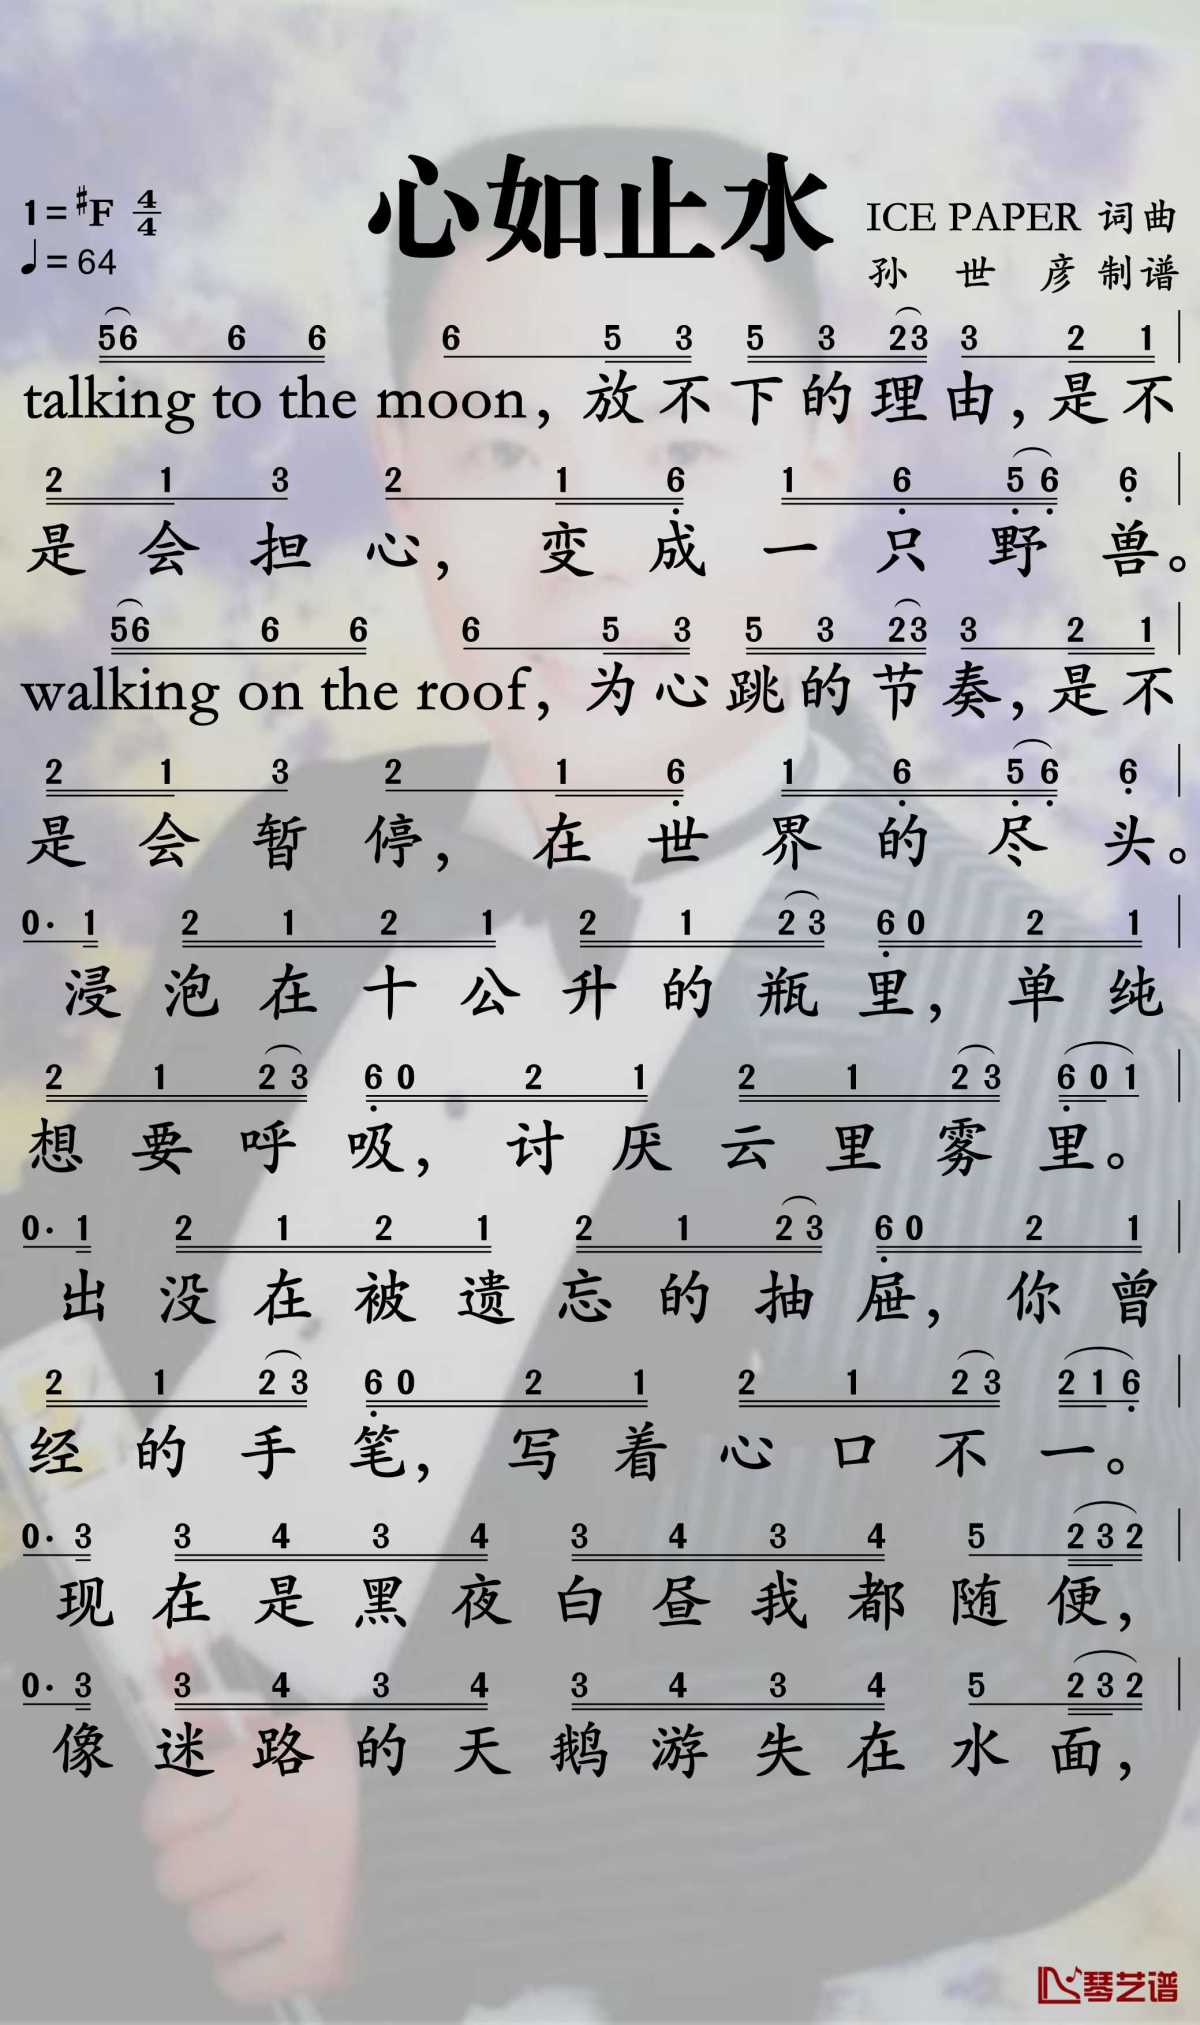 心如止水
1=#F 4/4
♩=64
ICE PAPER 词曲
孙 世 彦 制谱
56 6 6 6 5 3 5 3 23 3 2 1
talking to the moon, 放不下的理由, 是不
2 1 3 2 1 6̣ 1 6̣ 5̣ 6̣ 6̣
是会担心, 变成一只野兽。
56 6 6 6 5 3 5 3 23 3 2 1
walking on the roof, 为心跳的节奏, 是不
2 1 3 2 1 6̣ 1 6̣ 5̣ 6̣ 6̣
是会暂停, 在世界的尽头。
0· 1 2 1 2 1 2 1 2 3 6̣ 0 2 1
浸泡在十公升的瓶里, 单纯
2 1 2 3 6̣ 0 2 1 2 1 2 3 6̣ 0 1
想要呼吸, 讨厌云里雾里。
0· 1 2 1 2 1 2 1 2 3 6̣ 0 2 1
出没在被遗忘的抽屉, 你曾
2 1 2 3 6̣ 0 2 1 2 1 2 3 2 1 6̣
经的手笔, 写着心口不一。
0· 3 3 4 3 4 3 4 3 4 5 2 3 2
现在是黑夜白昼我都随便,
0· 3 3 4 3 4 3 4 3 4 5 2 3 2
像迷路的天鹅游失在水面,
琴艺谱